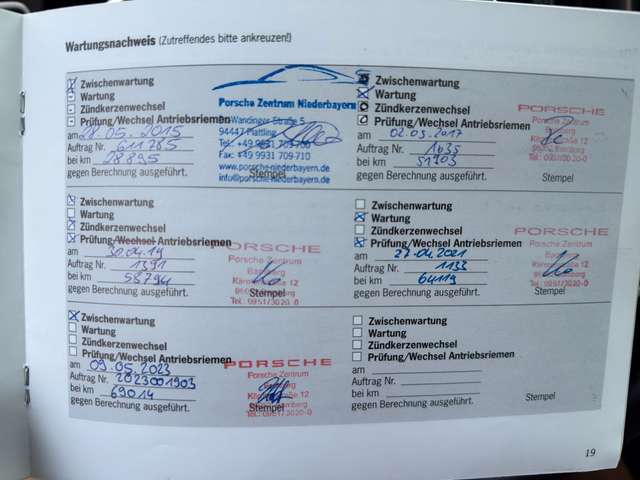 Wartungsnachweis (Zutreffendes bitte ankreuzen!)
Zwischenwartung
Wartung
Zündkerzenwechsel
Prüfung/Wechsel Antriebsriemen
am 28.05.2015
Auftrag Nr. 611785
bei km 28895
gegen Berechnung ausgeführt.
Porsche Zentrum Niederbayern
Wandinger Straße 5
94447 Plattling
Tel.: +49 9931
Fax: +49 9931 709-710
www.porsche-niederbayern.de
info@porsche-niederbayern.de
Stempel
Zwischenwartung
Wartung
Zündkerzenwechsel
Prüfung/Wechsel Antriebsriemen
am 02.03.2017
Auftrag Nr. 1635
bei km 51903
gegen Berechnung ausgeführt.
PORSCHE
Porsche Zentrum
Stempel
Zwischenwartung
Wartung
Zündkerzenwechsel
Prüfung/Wechsel Antriebsriemen
am 30.04.19
Auftrag Nr. 1391
bei km 58794
gegen Berechnung ausgeführt.
PORSCHE
Porsche Zentrum
Bamberg
Tel.: 0951/3020-0
Stempel
Zwischenwartung
Wartung
Zündkerzenwechsel
Prüfung/Wechsel Antriebsriemen
am 27.04.2021
Auftrag Nr. 1133
bei km 64119
gegen Berechnung ausgeführt.
PORSCHE
Porsche Zentrum
Bamberg
Tel.: 0951/3020-0
Stempel
Zwischenwartung
Wartung
Zündkerzenwechsel
Prüfung/Wechsel Antriebsriemen
am 09.05.2023
Auftrag Nr. 2023001903
bei km 69014
gegen Berechnung ausgeführt.
PORSCHE
Porsche Zentrum
Tel.: 0951/3020-0
Stempel
Zwischenwartung
Wartung
Zündkerzenwechsel
Prüfung/Wechsel Antriebsriemen
am
Auftrag Nr.
bei km
gegen Berechnung ausgeführt.
Stempel
19